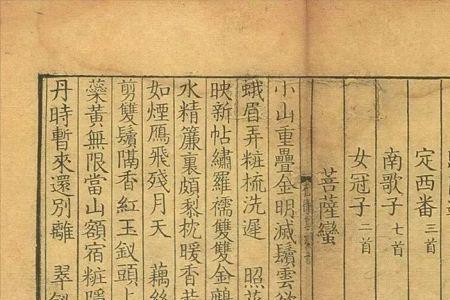 定西番 三首
南歌子 七首
女冠子 二首
菩薩蠻
小山重疊金明滅鬢雲欲
蛾眉弄粧梳洗遲 照花
映新帖繡羅襦雙雙金鷓
水精簾裏頗黎枕暖香
如煙鴈飛殘月天 藕絲
剪雙鬢隔香紅玉釵頭上
藥黃無限當山額宿粧隱
丹時暫來還別離 翠釵